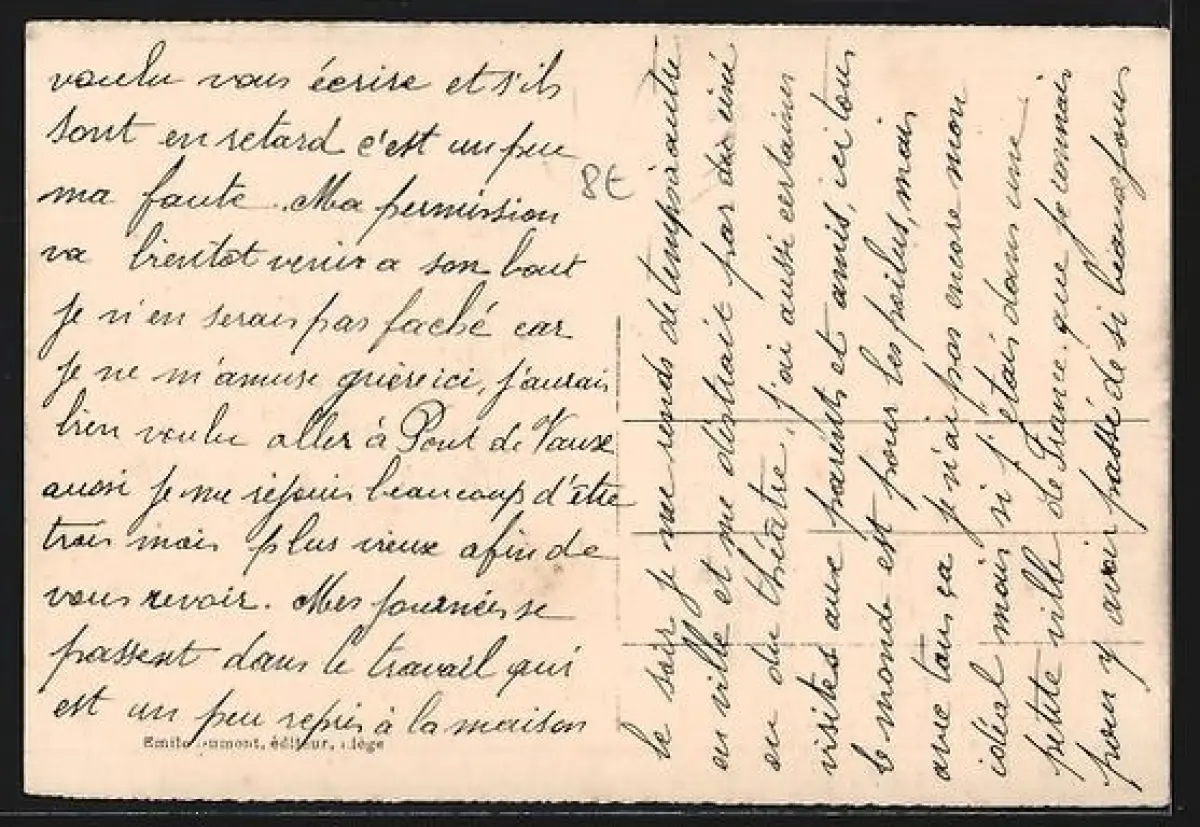 voulu vous écrire et s'ils
sont en retard c'est un peu
ma faute. Ma permission
va bientot venir a son bout
je n'en serais pas faché car
je ne m'amuse guère ici, j'aurais
bien voulu aller à Pont de Vaux
aussi je me rejouis beaucoup d'être
trois mois plus vieux afin de
vous revoir. Mes journées se
passent dans le travail qui
est un peu repris à la maison
Emile Dumont, éditeur, Liège
8€
le soir je me rends de temps à autre
en ville et me distrait par du ciné
ou du théâtre, j'ai aussi certaines
visites aux parents et amis, ici tous
le monde est pour les poilus, mais
avec tous ça je n'ai pas encore mon
idéal mais si j'étais dans une
petite ville de France que je connais
pour y avoir passé de si beaux jours